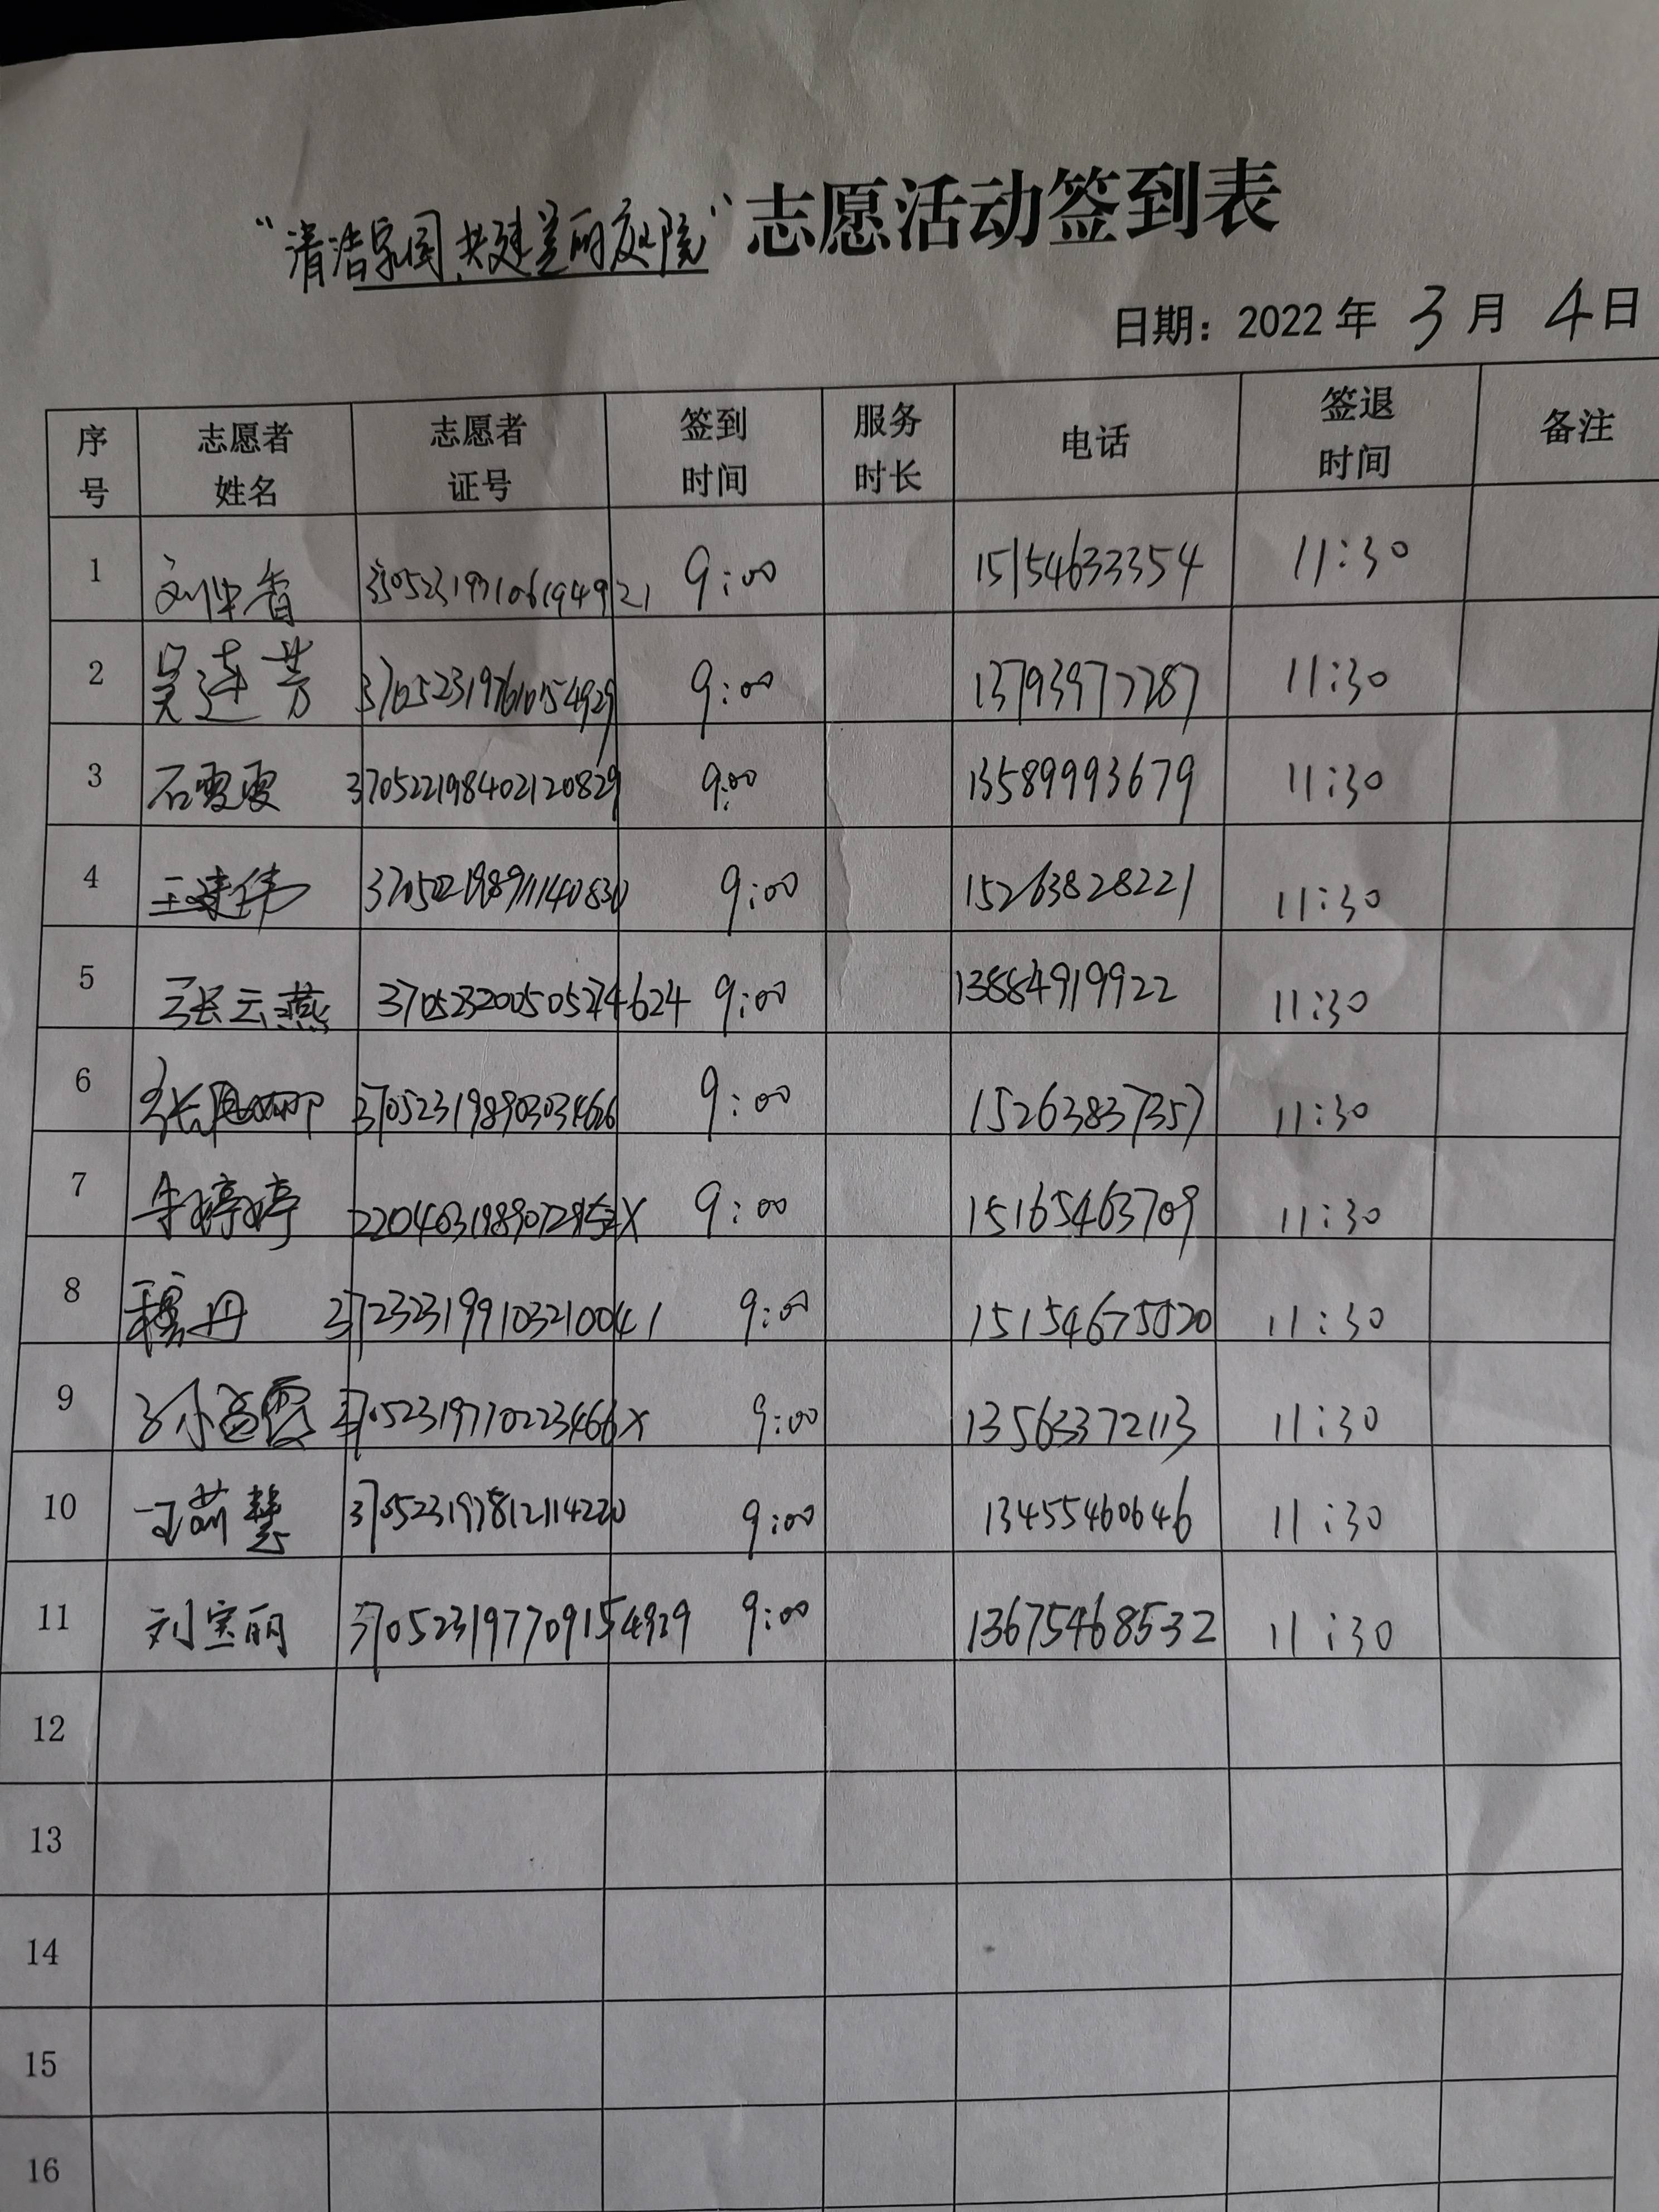 "清洁家园,共建美丽庭院"志愿活动签到表
日期：2022年 3月 4日
序号 志愿者姓名 志愿者证号 签到时间 服务时长 电话 签退时间 备注
1 9:00 15154633354 11:30
2 吴连芳 9:00 13793977287 11:30
3 石雯雯 370522198402120829 9:00 13589993679 11:30
4 王建伟 9:00 15263828221 11:30
5 张云燕 370523200505274624 9:00 13884919922 11:30
6 370523198903034626 9:00 15263837357 11:30
7 朱婷婷 9:00 15165463709 11:30
8 穆丹 372323199103210041 9:00 11:30
9 370523197710223466X 9:00 13563372113 11:30
10 370523197812114220 9:00 13455460646 11:30
11 刘宝丽 370523197709154929 9:00 13675468532 11:30
12
13
14
15
16